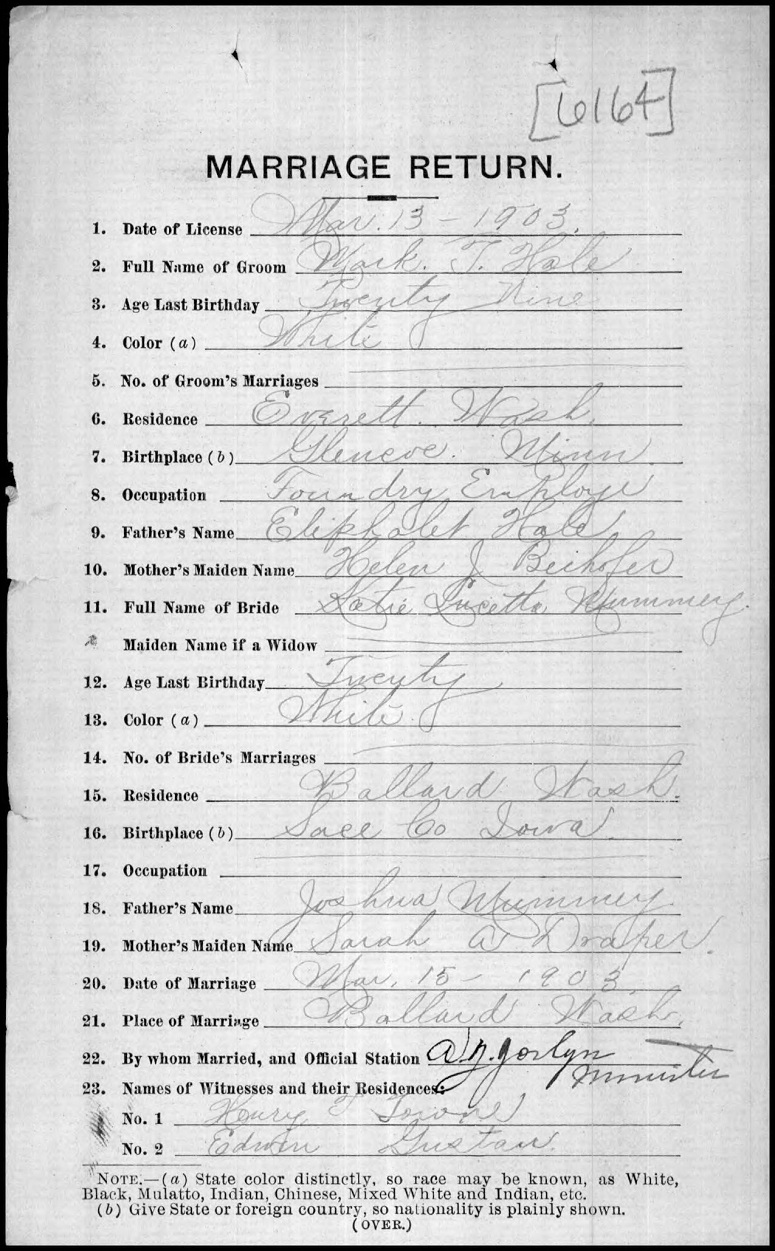 [6164]
MARRIAGE RETURN.
1. Date of License Mar. 13 - 1903.
2. Full Name of Groom Mark. T. Hale
3. Age Last Birthday Twenty Nine
4. Color (a) White
5. No. of Groom's Marriages
6. Residence Everett. Wash.
7. Birthplace (b) Glencoe. Minn
8. Occupation Foundry Employe
9. Father's Name Eliphalet Hale
10. Mother's Maiden Name Helen J Beihofer
11. Full Name of Bride Katie Lucetta Mummey.
Maiden Name if a Widow
12. Age Last Birthday Twenty
13. Color (a) White.
14. No. of Bride's Marriages
15. Residence Ballard Wash.
16. Birthplace (b) Sace Co Iowa.
17. Occupation
18. Father's Name Joshua Mummey
19. Mother's Maiden Name Sarah A Draper.
20. Date of Marriage Mar. 15 - 1903.
21. Place of Marriage Ballard Wash.
22. By whom Married, and Official Station Joslyn
Minister
23. Names of Witnesses and their Residences:
No. 1 Henry T Towne
No. 2 Edwin Gustav.
NOTE.—(a) State color distinctly, so race may be known, as White,
Black, Mulatto, Indian, Chinese, Mixed White and Indian, etc.
(b) Give State or foreign country, so nationality is plainly shown.
(OVER.)